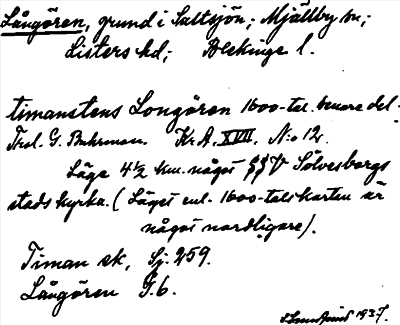 Långören, grund i Saltsjön; Mjällby sn;
Listers hd; Blekinge l.
timanstens Longören 1600-tal. senare del.
Trol. G. Buhrman. Kr.A. XVII, N:o 12.
Läge 4½ km. något SSV Sölvesborgs
stads kyrka. (Läget enl. 1600-talskarten är
något nordligare).
Timan ek, Sj. 259.
Långören G.6.
1937.